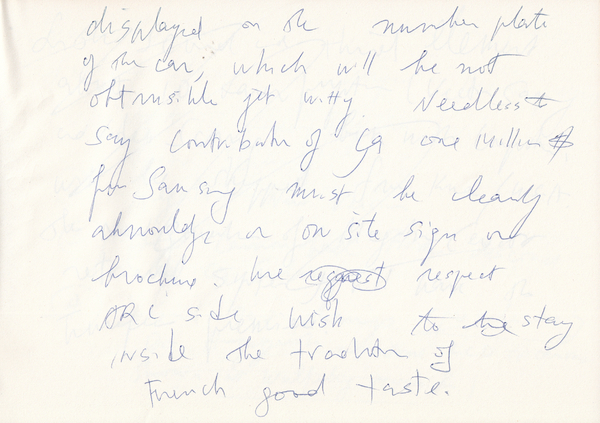 displayed on the number plate
of the car, which will be not
obtrusible yet witty. Needless to
say contribution of Ca one Million $
from Sansung must be clearly
aknowledge on on site sign and
brochure. We request respect
ARC side wish to stay
inside the tradition of
French good taste.